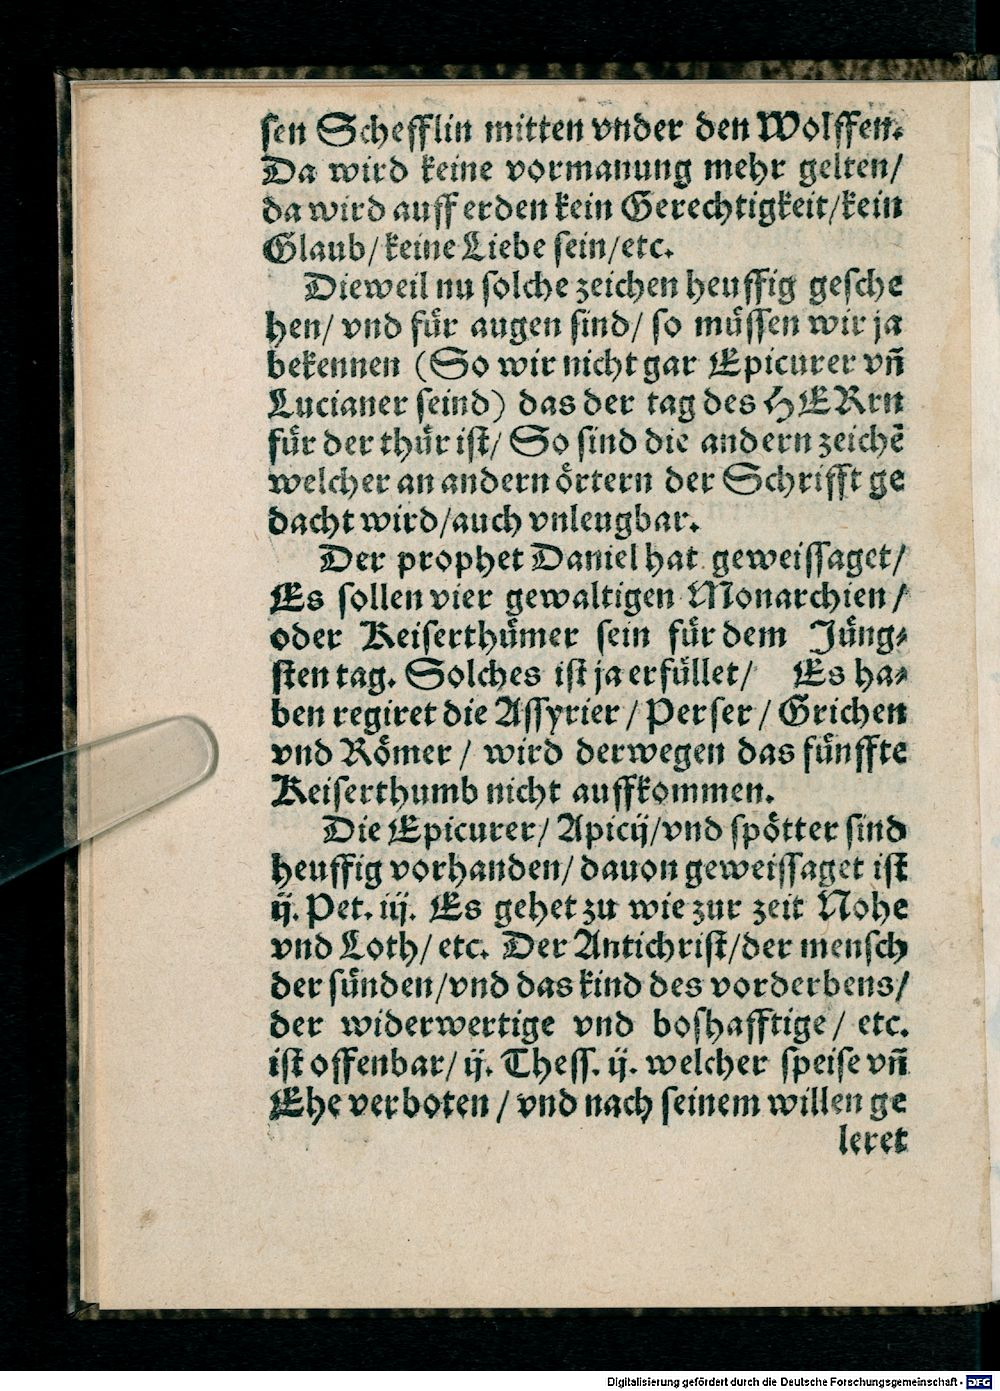 sen Schefflin mitten vnder den Wolffen.
Da wird keine vormanung mehr gelten/
da wird auff erden kein Gerechtigkeit/kein
Glaub/keine Liebe sein/etc.
Dieweil nu solche zeichen heuffig gesche
hen/ vnd für augen sind/ so müssen wir ja
bekennen (So wir nicht gar Epicurer vñ
Lucianer seind) das der tag des HERrn
für der thür ist/ So sind die andern zeichē
welcher an andern örtern der Schrifft ge
dacht wird/auch vnleugbar.
Der prophet Daniel hat geweissaget/
Es sollen vier gewaltigen Monarchien/
oder Keiserthümer sein für dem Jüng⸗
sten tag. Solches ist ja erfüllet/ Es ha⸗
ben regiret die Assyrier/Perser/Grichen
vnd Römer/ wird derwegen das fünffte
Keiserthumb nicht auffkommen.
Die Epicurer/ Apicij/vnd spötter sind
heuffig vorhanden/ dauon geweissaget ist
ij. Pet. iij. Es gehet zu wie zur zeit Nohe
vnd Loth/ etc. Der Antichrist/der mensch
der sünden/vnd das kind des vorderbens/
der widerwertige vnd boshafftige/ etc.
ist offenbar/ ij. Thess. ij. welcher speise vñ
Ehe verboten/vnd nach seinem willen ge
leret
Digitalisierung gefördert durch die Deutsche Forschungsgemeinschaft - DFG